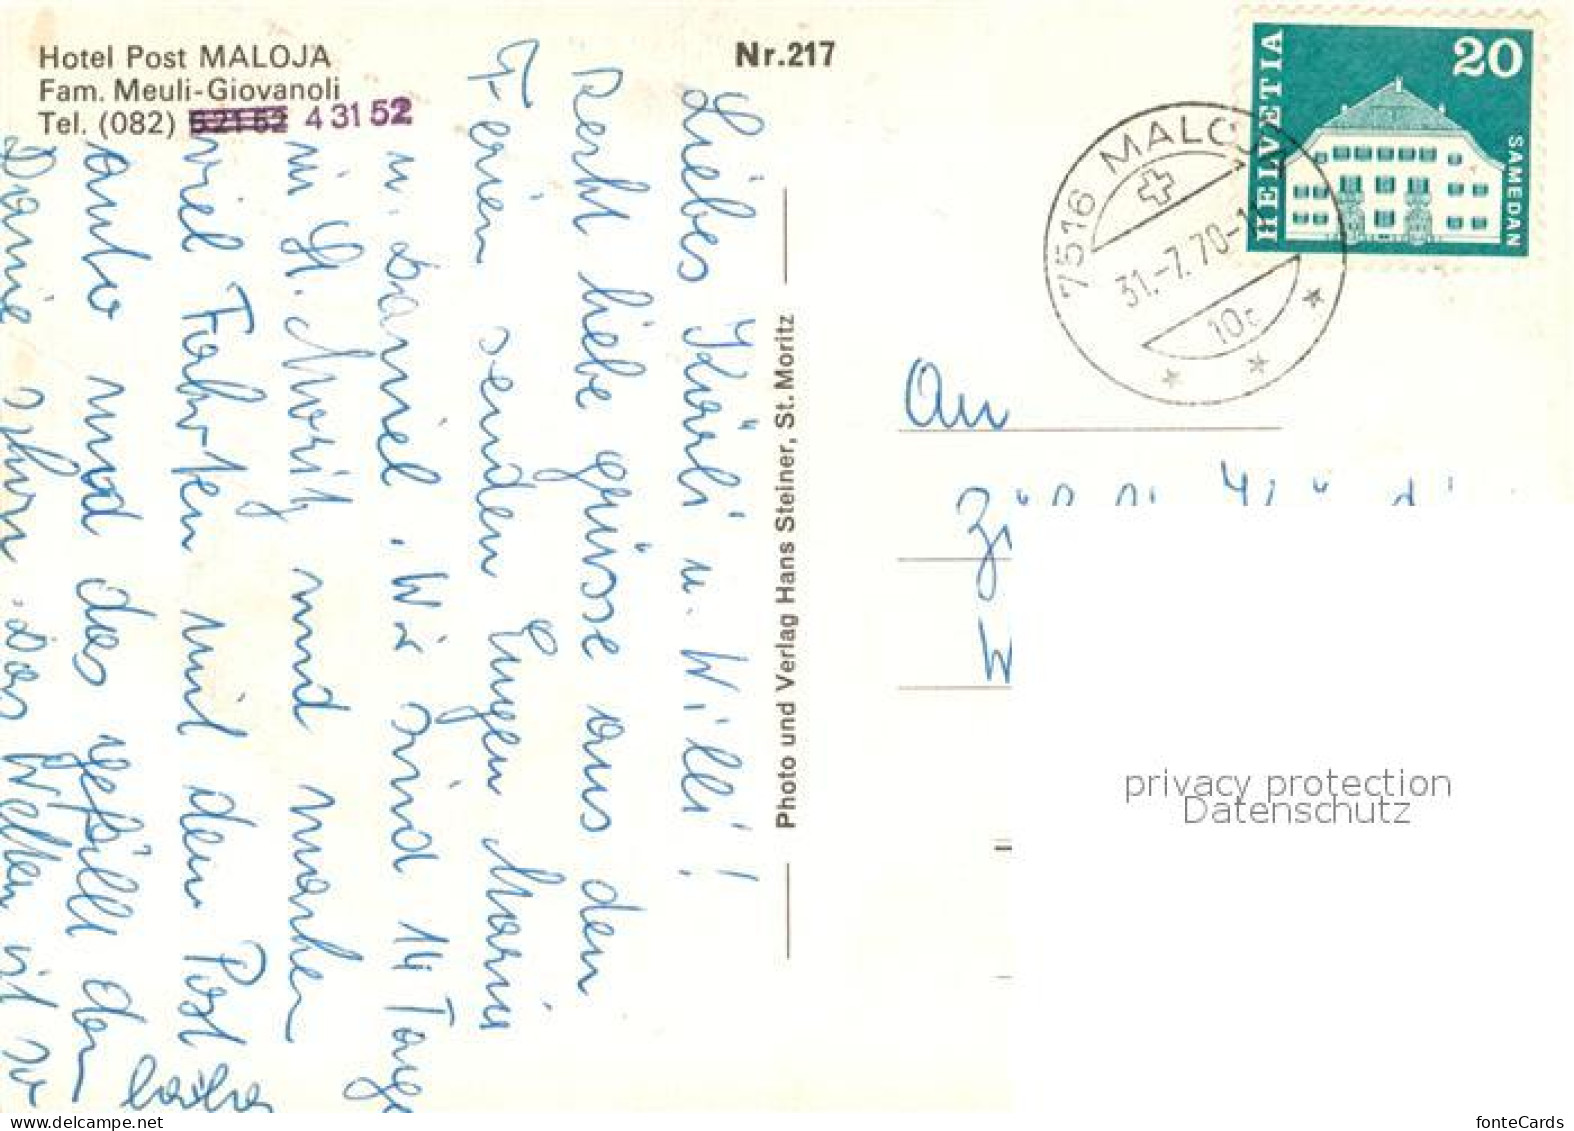 Hotel Post MALOJA
Fam. Meuli-Giovanoli
Tel. (082) 5 21 52 4 31 52
Nr.217
HELVETIA
20
SAMEDAN
7516 MALOJA
31.-7.70-1
10c
Liebes Klärli u. Willi!
Recht liebe grüsse aus den
Ferien senden Eugen Marie
u. Daniel. Wir sind 14 Tage
in St. Moritz und machen
viel Fahrten mit dem Post
auto und das gefällt dem
Danie sehr. Das Wetter ist so
Photo und Verlag Hans Steiner, St. Moritz
An
W
privacy protection
Datenschutz
fonteCards
delcampe.net